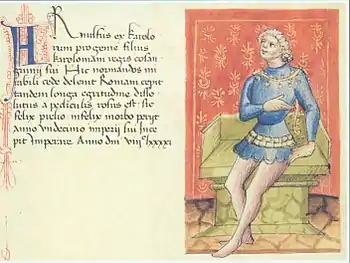 ARnulfus ex karolo
rum progenie filius
karolomani regis cosan
guinii sui Hic normandos mi
rabili cede delevit Romam cepit
tandem longa egritudine disso
lutus a pediculis rosus est sic
felix prelio infelix morbo periit
anno undecimo imperii sui Ince
pit Imperare Anno dni viijc lxxxxi